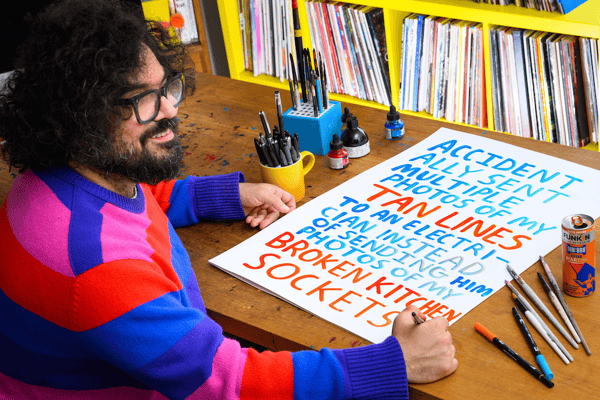 ACCIDENT
ALLY SENT
MULTIPLE
PHOTOS OF MY
TAN LINES
TO AN ELECTRI
CIAN INSTEAD
OF SENDING HIM
PHOTOS OF MY
BROKEN KITCHEN
SOCKETS
FUNKIN